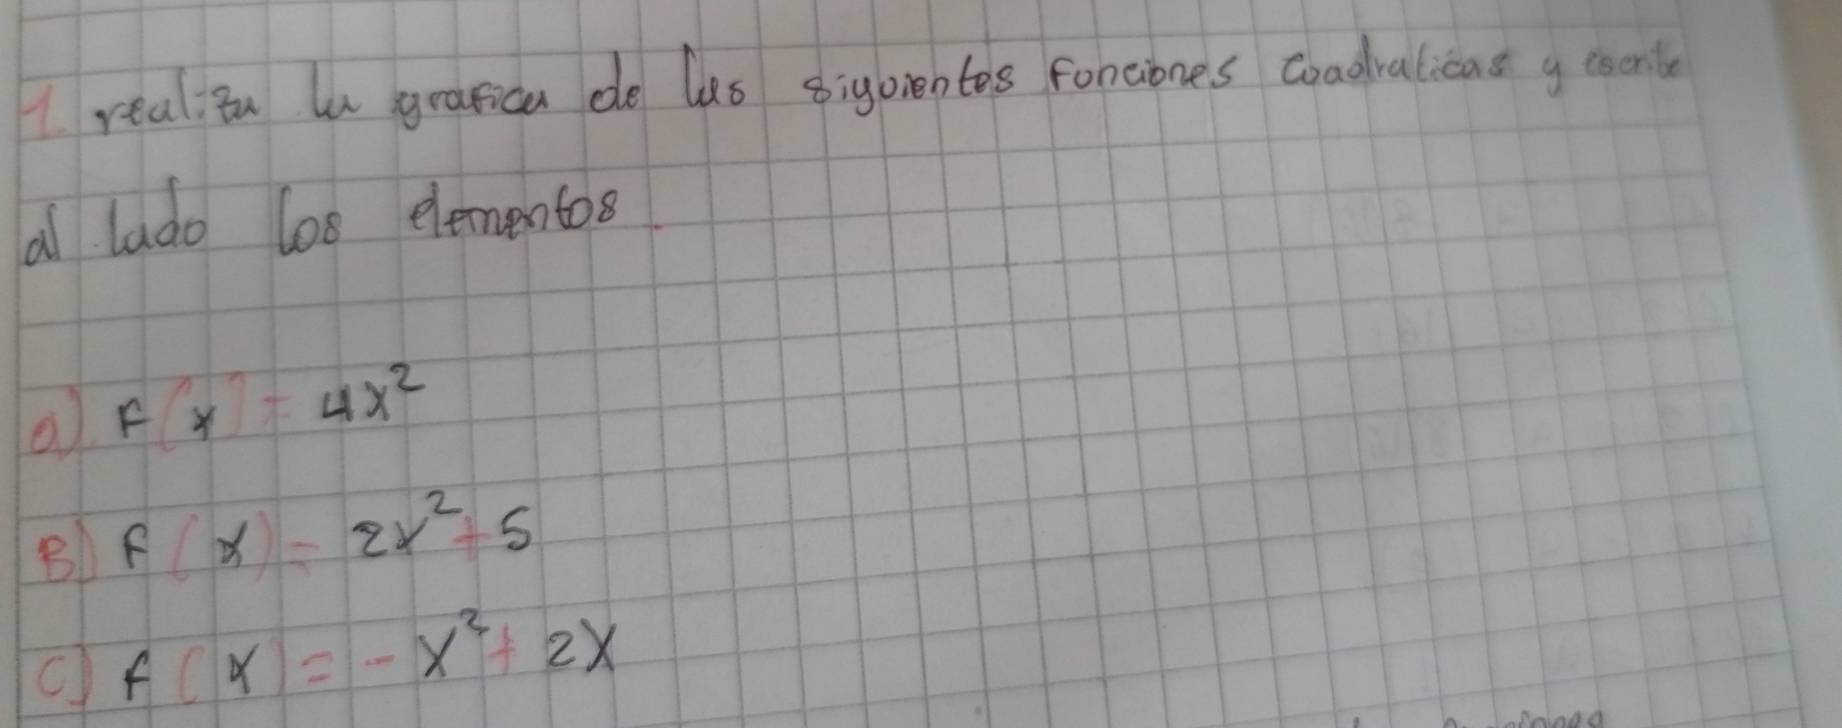 1. realiza la grafica de las siguientes funciones cuadraticas y escribe
al lado los elementos.
a) F(x) = 4x²
B) F(x) = 2x² + 5
C) F(x) = -x² + 2x